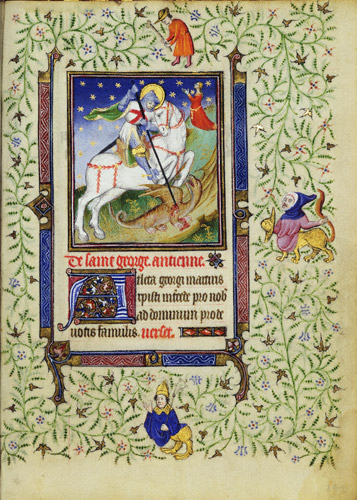 De saint george. antienne.
georgi martiris
xpisti intcede pro nob
ad dominum pro de
uotis famulis. uerset.